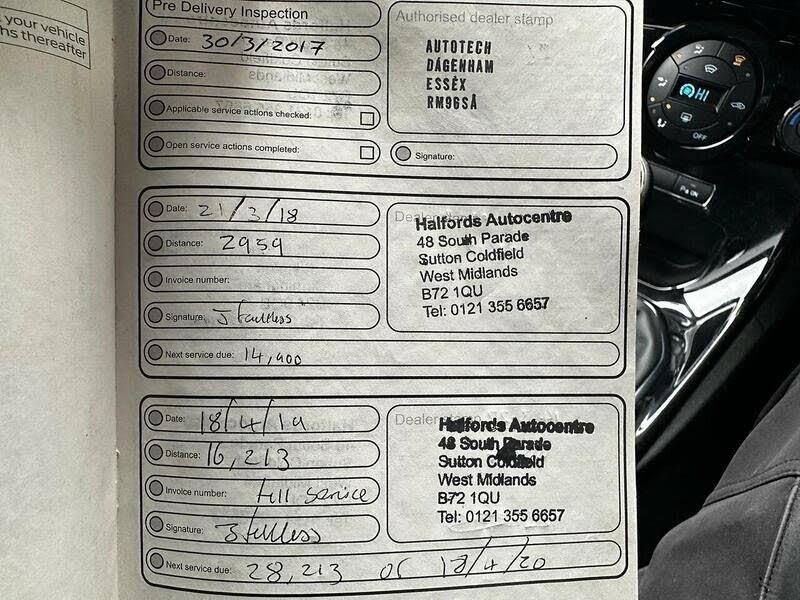 your vehicle
hs thereafter
Pre Delivery Inspection
Date: 30/3/2017
Distance:
Applicable service actions checked:
Open service actions completed:
Authorised dealer stamp
AUTOTECH
DAGENHAM
ESSEX
RM96SA
Signature:
Date: 21/3/18
Distance: 2959
Invoice number:
Signature: J faultless
Next service due: 14,900
Halfords Autocentre
48 South Parade
Sutton Coldfield
West Midlands
B72 1QU
Tel: 0121 355 6657
Date: 18/4/19
Distance: 16,213
Invoice number: full service
Signature:
Next service due: 28,213 or 18/4/20
Dealer stamp
Halfords Autocentre
48 South Parade
Sutton Coldfield
West Midlands
B72 1QU
Tel: 0121 355 6657
HI
OFF